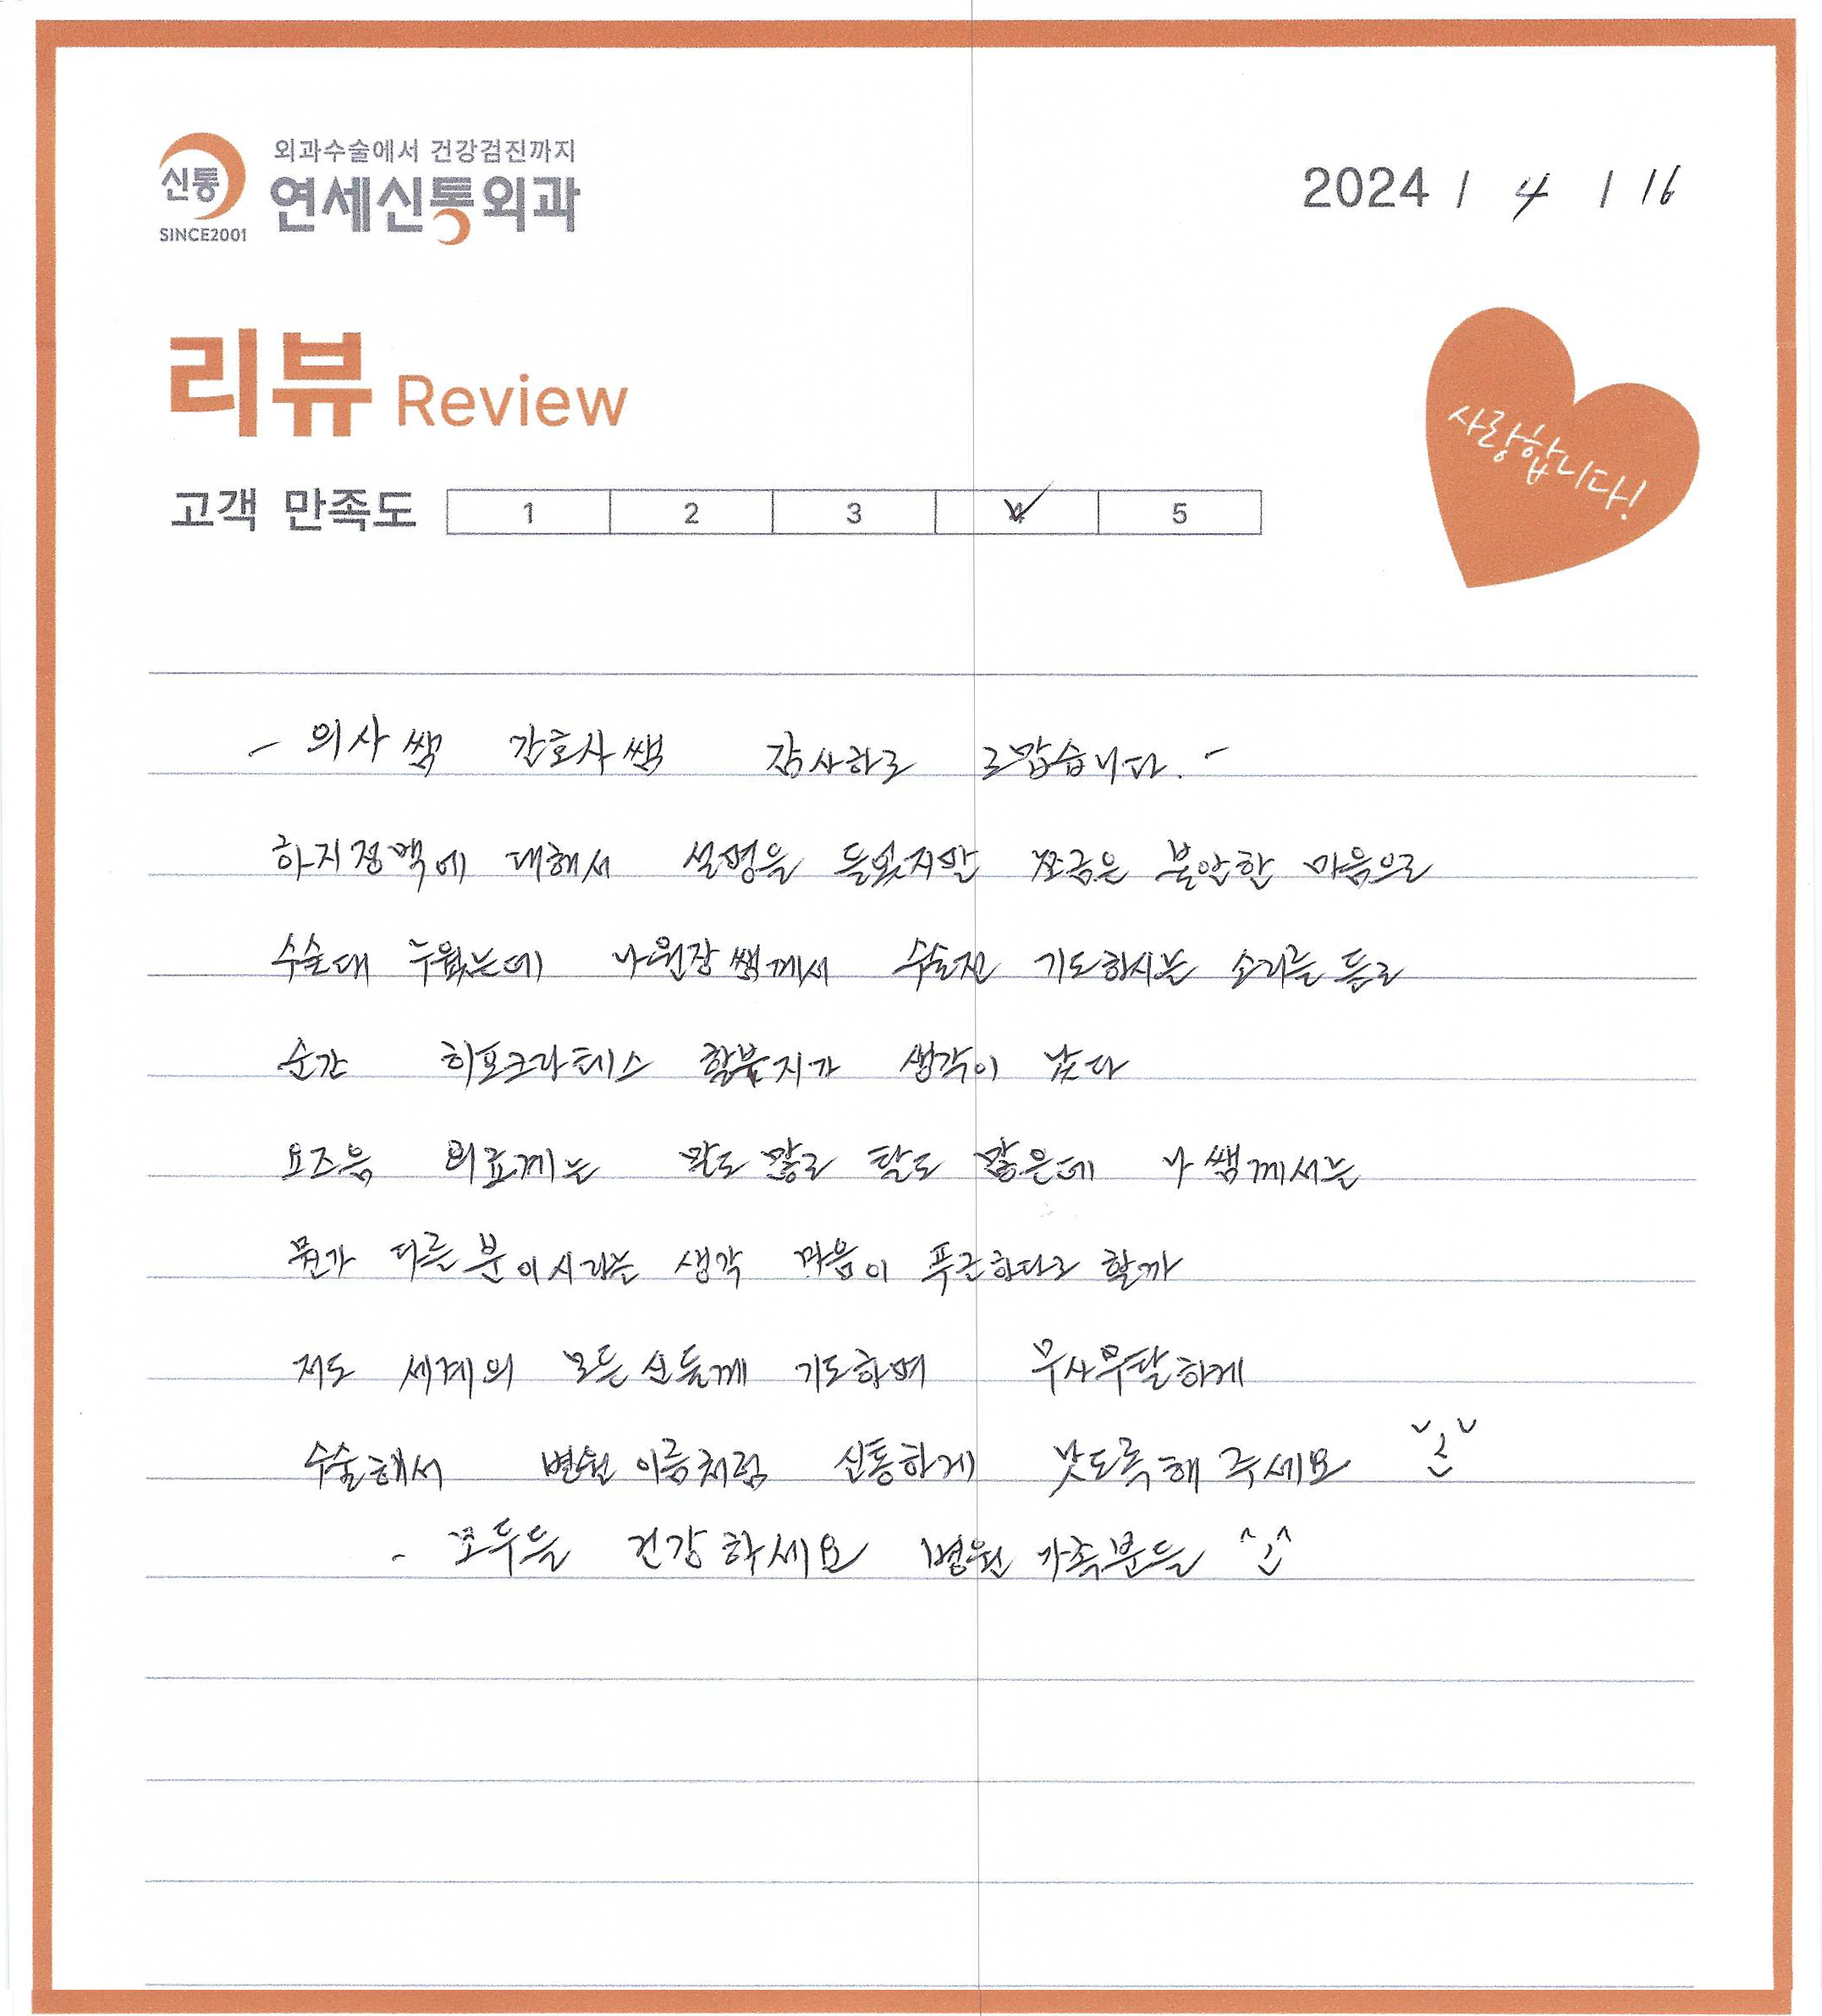 외과수술에서 건강검진까지
신통 연세신통외과
SINCE2001
2024 / 4 / 16
리뷰 Review
사랑합니다!
고객 만족도 1 2 3 4 5
- 의사쌤 간호사쌤 감사하고 고맙습니다. -
하지정맥에 대해서 설명을 들었지만 쪼금은 불안한 마음으로
수술대 누웠는데 나원장쌤께서 수술전 기도하시는 소리를 듣고
순간 히포크라테스 할부지가 생각이 났다
요즈음 의료계는 말도 많고 탈도 많은데 나쌤께서는
뭔가 다른 분이시라는 생각 마음이 푸근하다고 할까
저도 세계의 모든 신들께 기도하며 무사무탈하게
수술해서 병원 이름처럼 신통하게 낫도록해 주세요
- 모두들 건강하세요 병원 가족분들 ^^